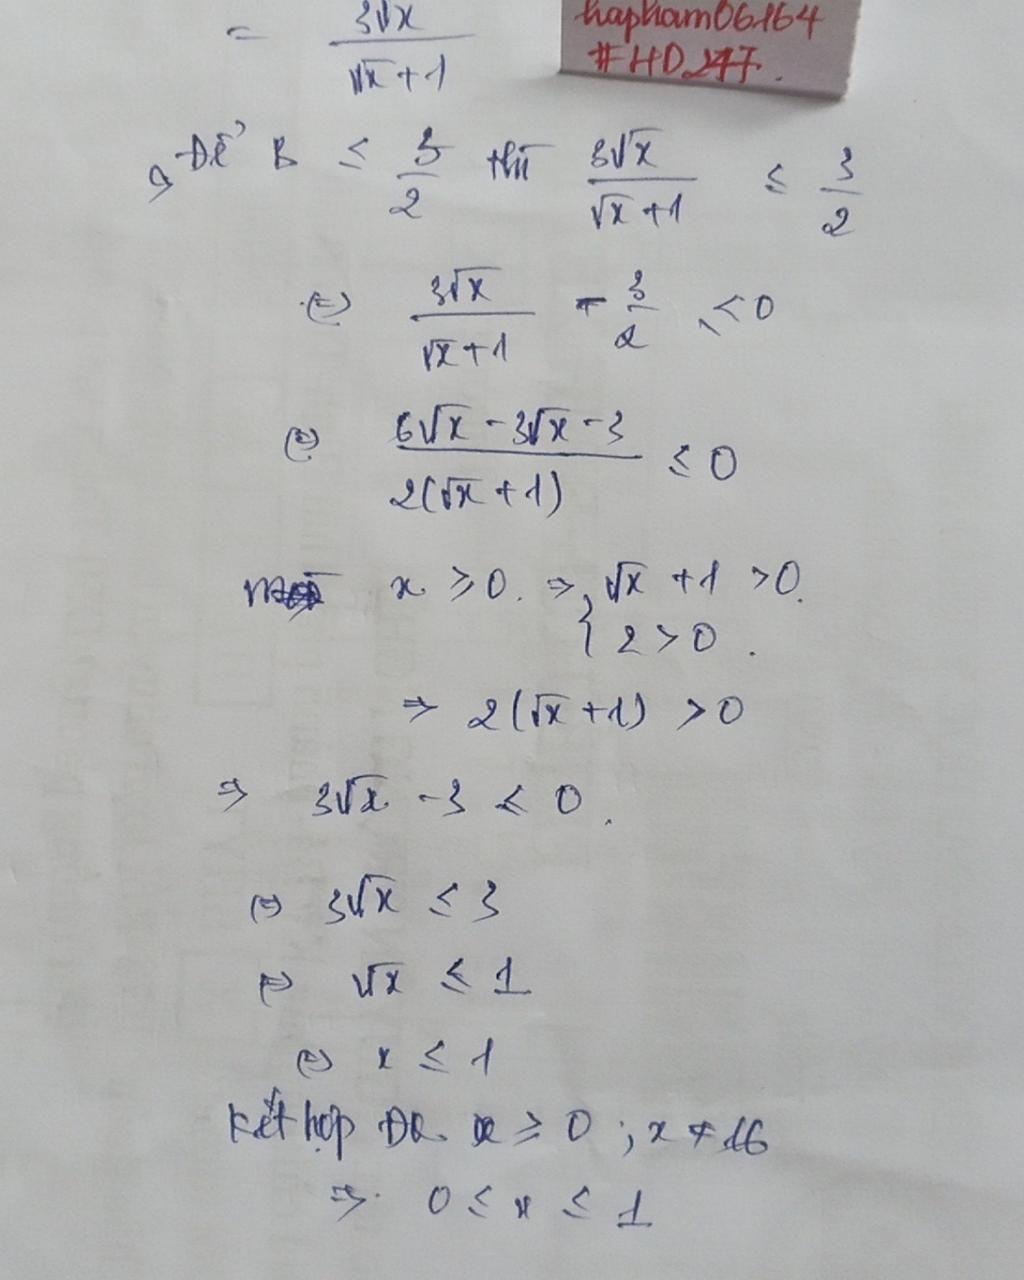 = 3√x / (√x + 1)
hapham06164
#HD247.
=> Để B ≤ 3/2 thì 3√x / (√x + 1) ≤ 3/2
(=) 3√x / (√x + 1) - 3/2 ≤ 0
(=) (6√x - 3√x - 3) / (2(√x + 1)) ≤ 0
x ≥ 0. => { √x + 1 > 0.
2 > 0.
=> 2(√x + 1) > 0
=> 3√x - 3 ≤ 0.
(=) 3√x ≤ 3
(=) √x ≤ 1
(=) x ≤ 1
Kết hợp ĐK x ≥ 0 ; x ≠ 16
=> 0 ≤ x ≤ 1